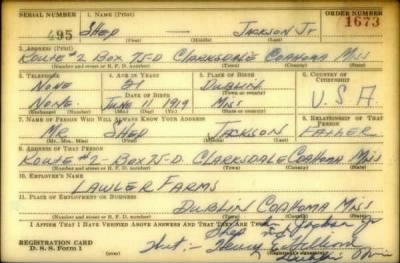 SERIAL NUMBER 1. NAME (Print) ORDER NUMBER
495 SHED JACKSON Jr 1673
(First) (Middle) (Last)
2. ADDRESS (Print)
ROUTE #2 BOX 75-D CLARKSDALE COAHOMA MISS
(Number and street or R. F. D. number) (Town) (County) (State)
3. TELEPHONE 4. AGE IN YEARS 5. PLACE OF BIRTH 6. COUNTRY OF CITIZENSHIP
NONE 21 DUBLIN
DATE OF BIRTH
NONE. JUNE 11 1919 MISS U.S.A.
7. NAME OF PERSON WHO WILL ALWAYS KNOW YOUR ADDRESS 8. RELATIONSHIP OF THAT PERSON
MR. SHED JACKSON FATHER
(Mr., Mrs., Miss) (First) (Middle) (Last)
9. ADDRESS OF THAT PERSON
ROUTE #2-BOX 75-D. CLARKSDALE COAHOMA MISS
(Number and street or R. F. D. number) (Town) (County) (State)
10. EMPLOYER'S NAME
LAWLER FARMS
11. PLACE OF EMPLOYMENT OR BUSINESS
DUBLIN COAHOMA MISS
(Number and street or R. F. D. number) (Town) (County) (State)
I AFFIRM THAT I HAVE VERIFIED ABOVE ANSWERS AND THAT THEY ARE TRUE.
Shed Jackson Jr
REGISTRATION CARD
D. S. S. Form 1
Wit:- Henry
Dublin Miss